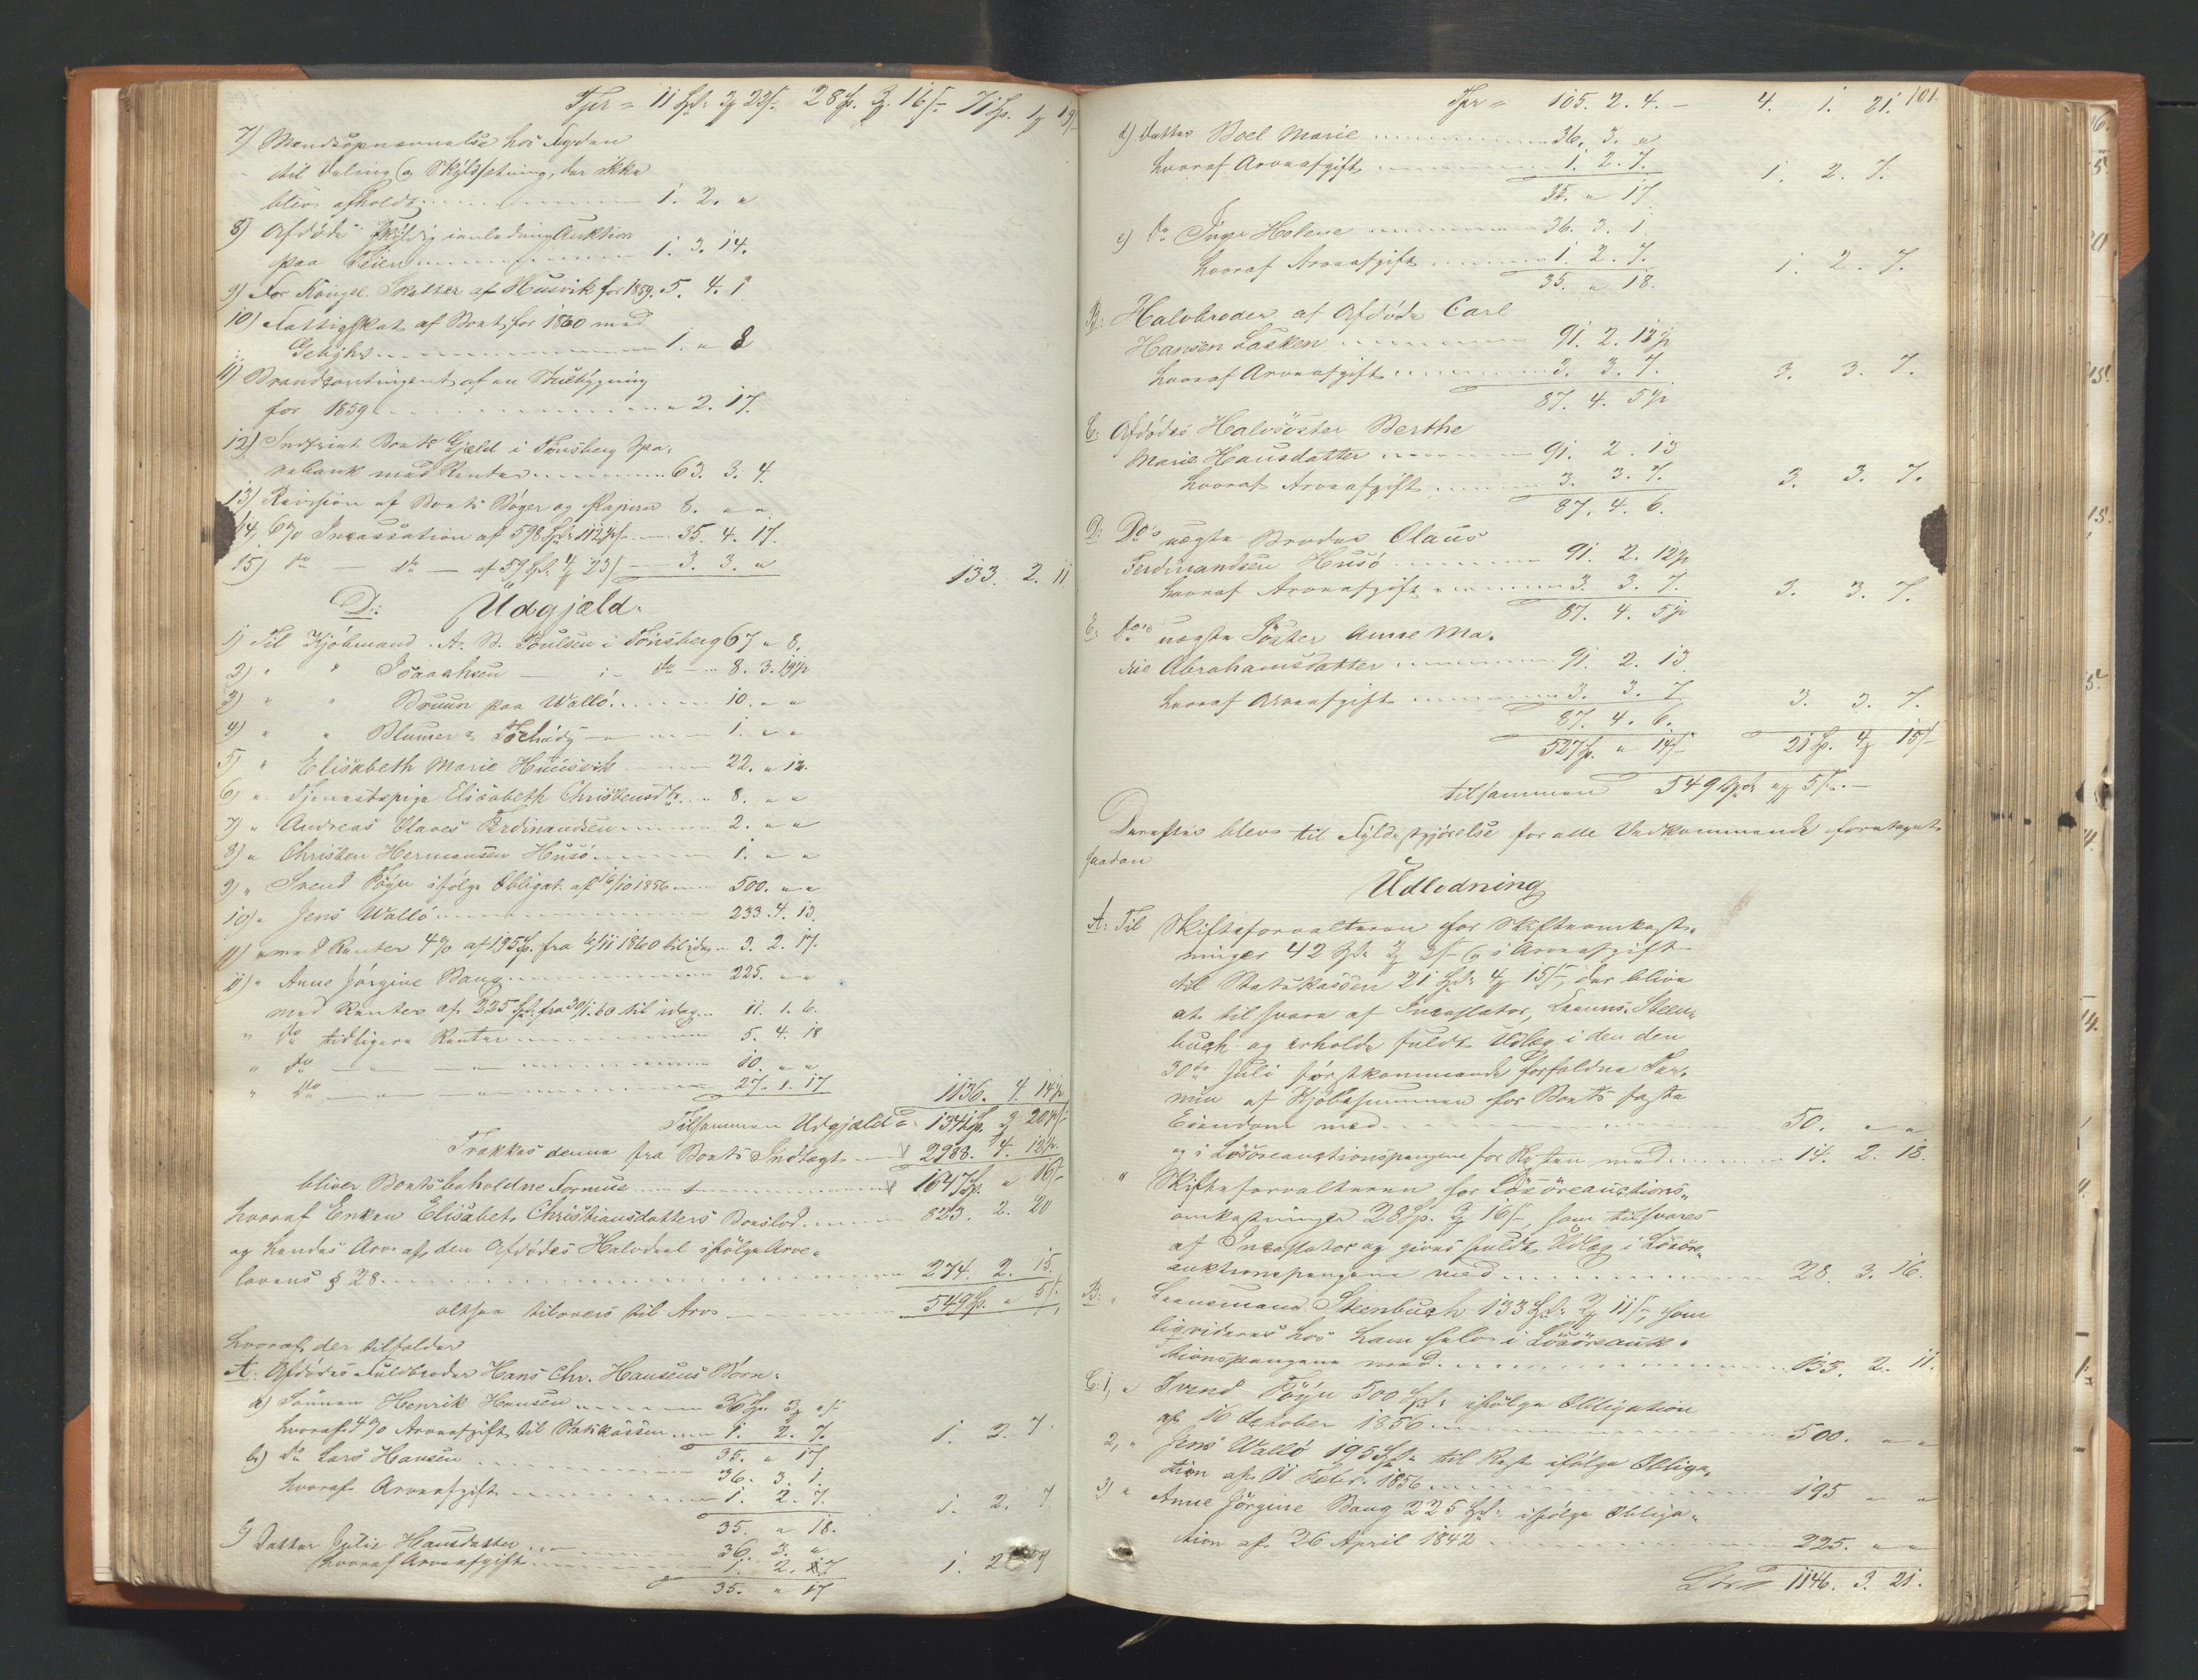 Tpr = 11 Spd. 3 23 s. 28 Sp. 3. 16 s. 71 Sp. 1 19
7) Mandsopnævnelse hos Fogden
til Deling og Skyldsetning, der ikke
blev afholdt 1. 2. "
8) Afdøde skyldig i anledning Auktion
paa 1. 3. 14.
9) For Kongel. Skatter af Husvik for 1859. 5. 4. 1
10) Fattigskat af Boet for 1860 med
Gebyhr 1. " 8
11) Brandcontingent af en Stuebygning
for 1859 " 2. 17.
12) Indfriet Boets Gjæld i Tønsberg Spa-
rebank med Renter 63. 3. 4.
13) Revision af Boets Bøger og Papirer 8. " "
14) 6 % Incassation af 598 Spd. 112 s. 35. 4. 17.
15) do — do — af 59 Spd. 4 23 s. 3. 3. "
133. 2. 11
D: Udgjæld.
1) Til Kjøbmand A. B. Poulsen i Tønsberg 67 " 8.
2) " " Isaachsen — i — do — 8. 3. 19½
3) " " Bruun paa Walló 10. " "
4) " " Blumer 1. " "
5) " Elisabeth Marie Huusvik 22. " 12.
6) " Tjenestepige Elisabeth Christensdtr. 8. " "
7) " Andreas Olaves Ferdinandsen 2. " "
8) " Christen Hermansen Husö 1. " "
9) " Svend Föyn ifölge Obligat. af 16/10 1856 500. " "
10) " Jens Walló 233. 4. 13.
11) " med Renter 4 % af 195 Sp. fra 11 1860 til idag 3. 2. 17.
11) " Anne Jörgine Baug 225. " "
med Renter af 225 Spd. fra 30/1. 60 til idag 11. 1. 6.
" do tidligere Renter 5. 4. 18
" do — " — 10. " "
" do — " — 27. 1. 17
1136. 4. 14½
Tilsammen Udgjæld = 1341 Sp. 3 20½ s.
Trækkes denne fra Boets Indtægt 2988. 4. 12½.
bliver Boets beholdne Formue 1647 Sp. " 16 s.
hvoraf Enken Elisabet Christiansdatters Boeslod 823. 2. 20
og hendes Arv af den Afdødes Halvdeel ifölge Arve-
lovens § 28 274. 2. 15.
altsaa tilovers til Arv 549 Sp. " 5 s.
hvoraf der tilfalder
A: Afdødes Fuldbroder Hans Chr. Hansens Börn:
a) Sönnen Henrik Hansen 36 Sp. 3 " s.
hvoraf 4 % Arveafgift til Statskassen 1. 2. 7. 1. 2. 7.
35. " 17
b) do Lars Hansen 36. 3. 1.
hvoraf Arveafgift 1. 2. 7. 1. 2. 7
35. " 18.
c) Datter Julie Hansdatter 36. 3. "
hvoraf Arveafgift 1. 2. 7 1. 2 7
35. " 17
Tpr = 105. 2. 4. — 4. 1. 21. 101.
d) Datter Boel Marie 36. 3. "
hvoraf Arveafgift 1. 2. 7. 1. 2. 7.
35. " 17
e) do Inge Helene 36. 3. 1
hvoraf Arveafgift 1. 2. 7. 1. 2. 7.
35. " 18.
B: Halvbroder af Afdøde Carl
Hansen Lasken 91. 2. 12½
hvoraf Arveafgift 3. 3. 7. 3. 3. 7.
87. 4. 5½
C: Afdødes Halvsöster Berthe
Marie Hansdatter 91. 2. 13
hvoraf Arveafgift 3. 3. 7. 3. 3. 7.
87. 4. 6.
D: Do's uægte Broder Olaus
Ferdinandsen Husö 91. 2. 12½
hvoraf Arveafgift 3. 3. 7. 3. 3. 7.
87. 4. 5½
E: Do's uægte Söster Anne Ma-
rie Abrahamsdatter 91. 2. 13
hvoraf Arveafgift 3. 3. 7 3. 3. 7.
87. 4. 6.
527 Sp. " 14 s. 21 Sp. 4 15 s.
tilsammen 549 Spd. " 5 s.
Derefter blev til Fyldestgjörelse for alle Vedkommende foretaget
saadan
Udlodning
A: Til Skifteforvalteren for Skifteomkost-
ninger 42 Spd. 2 3 s. og i Arveafgift
til Statskassen 21 Spd. 4 15 s., der blive
at tilsvare af Incassator, Lensm. Steen-
buch og erholde fuldt Udlæg i den den
30te Juli förstkommende forfaldne Ter-
min af Kjöbesummen for Boets faste
Eiendom med 50. " "
og i Lösöreauctionspengene for Resten med 14. 2. 18.
" Skifteforvalteren for Lösöreauctions-
omkostninger 28 Sp. 3 16 s., som tilsvares
af Incassator og gives fuldt Udlæg i Lösöre-
auktionspengene med 28. 3. 16.
B: " Lensmand Steenbuch 133 Spd. 2 11 s., som
likvideres hos ham selv i Lösöreauk-
tionspengene med 133. 2. 11.
C: 1, " Svend Föyn 500 Spd. ifölge Obligation
af 16 October 1856 500. " "
2, " Jens Walló 195 Spd. til Rest ifölge Obliga-
tion af 11 Febr. 1856 195 " "
3) " Anne Jörgine Baug 225 Spd. ifölge Obliga-
tion af 26 April 1842 225. " "
Lat. 1146. 3. 21.